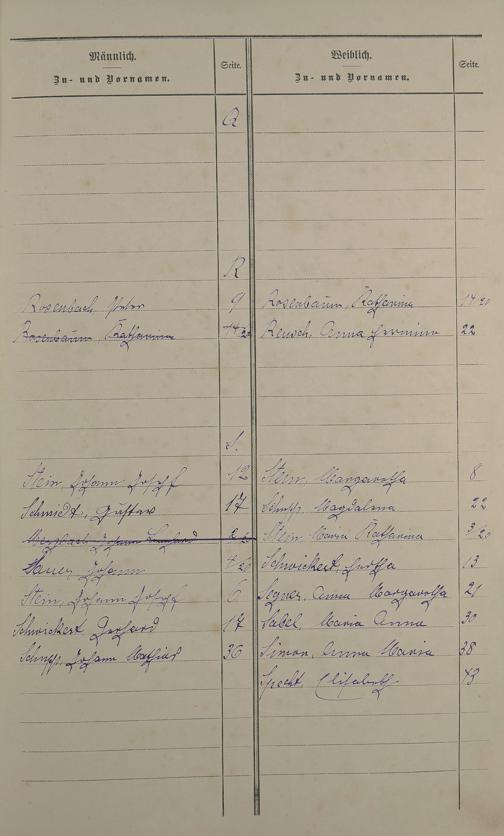 Männlich.
Zu- und Vornamen.
Seite.
Weiblich.
Zu- und Vornamen.
Seite.
Q
R
Rosenbach, Peter 9 Rosenbaum, Katharina 14 20
Rosenbaum, Katharina 14 20 Reusch, Anna Hermine 22
S.
Stein, Johann Joseph 12 Stein, Margaretha 8
Schmidt, Gustav 17 Magdalena 22
Johann Stein, Maria Katharina 3 20
Johann Schwickert, Hertha 13
Stein, Johann Joseph 6 Segner, Anna Margaretha 21
Schwickert Gerhard 17 Sabel, Maria Anna 30
Johann Mathias 36 Simon, Anna Maria 38
Specht, Elisabeth. 43